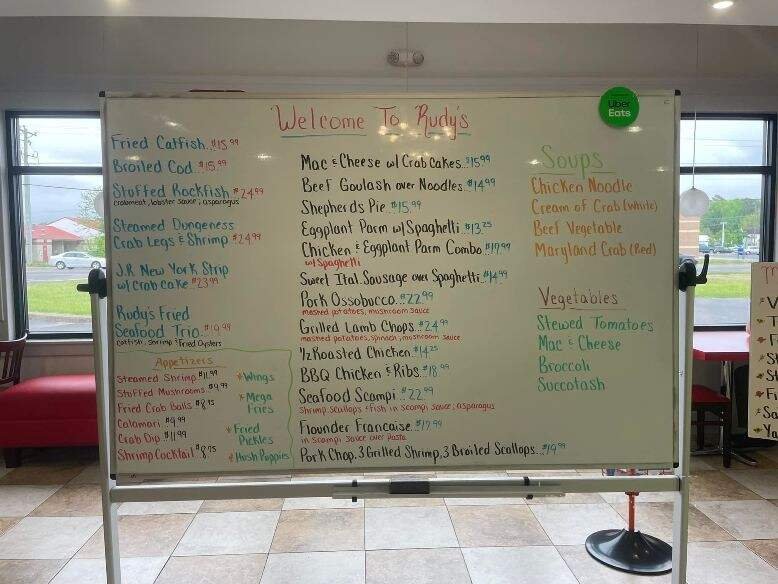 Welcome To Rudy's
Uber
Eats
Fried Catfish..$15.99
Broiled Cod..$15.99
Stuffed Rockfish.$24.99
crabmeat, lobster sauce, asparagus
Steamed Dungeness
Crab Legs & Shrimp.$24.99
J.R. New York Strip
w/ Crab Cake.$23.99
Rudy's Fried
Seafood Trio..$19.99
catfish, shrimp & fried oysters
Appetizers
Steamed Shrimp $11.99
Stuffed Mushrooms $9.99
Fried Crab Balls $8.75
Calamari $9.99
Crab Dip $11.99
Shrimp Cocktail $8.75
*Wings
*Mega
Fries
*Fried
Pickles
*Hush Puppies
Mac & Cheese w/ Crab Cakes..$15.99
Beef Goulash over Noodles..$14.99
Shepherds Pie..$15.99
Eggplant Parm w/ Spaghetti..$13.25
Chicken & Eggplant Parm Combo..$17.99
w/ Spaghetti
Sweet Ital. Sausage over Spaghetti..$14.99
Pork Ossobucco..$22.99
mashed potatoes, mushroom sauce
Grilled Lamb Chops..$24.99
mashed potatoes, spinach, mushroom sauce
1/2 Roasted Chicken..$14.25
BBQ Chicken & Ribs..$18.99
Seafood Scampi..$22.99
shrimp, scallops & fish in scampi sauce, asparagus
Flounder Francaise..$17.99
in scampi sauce over pasta
Pork Chop, 3 Grilled Shrimp, 3 Broiled Scallops...$19.99
Soups
Chicken Noodle
Cream of Crab (White)
Beef Vegetable
Maryland Crab (Red)
Vegetables
Stewed Tomatoes
Mac & Cheese
Broccoli
Succotash